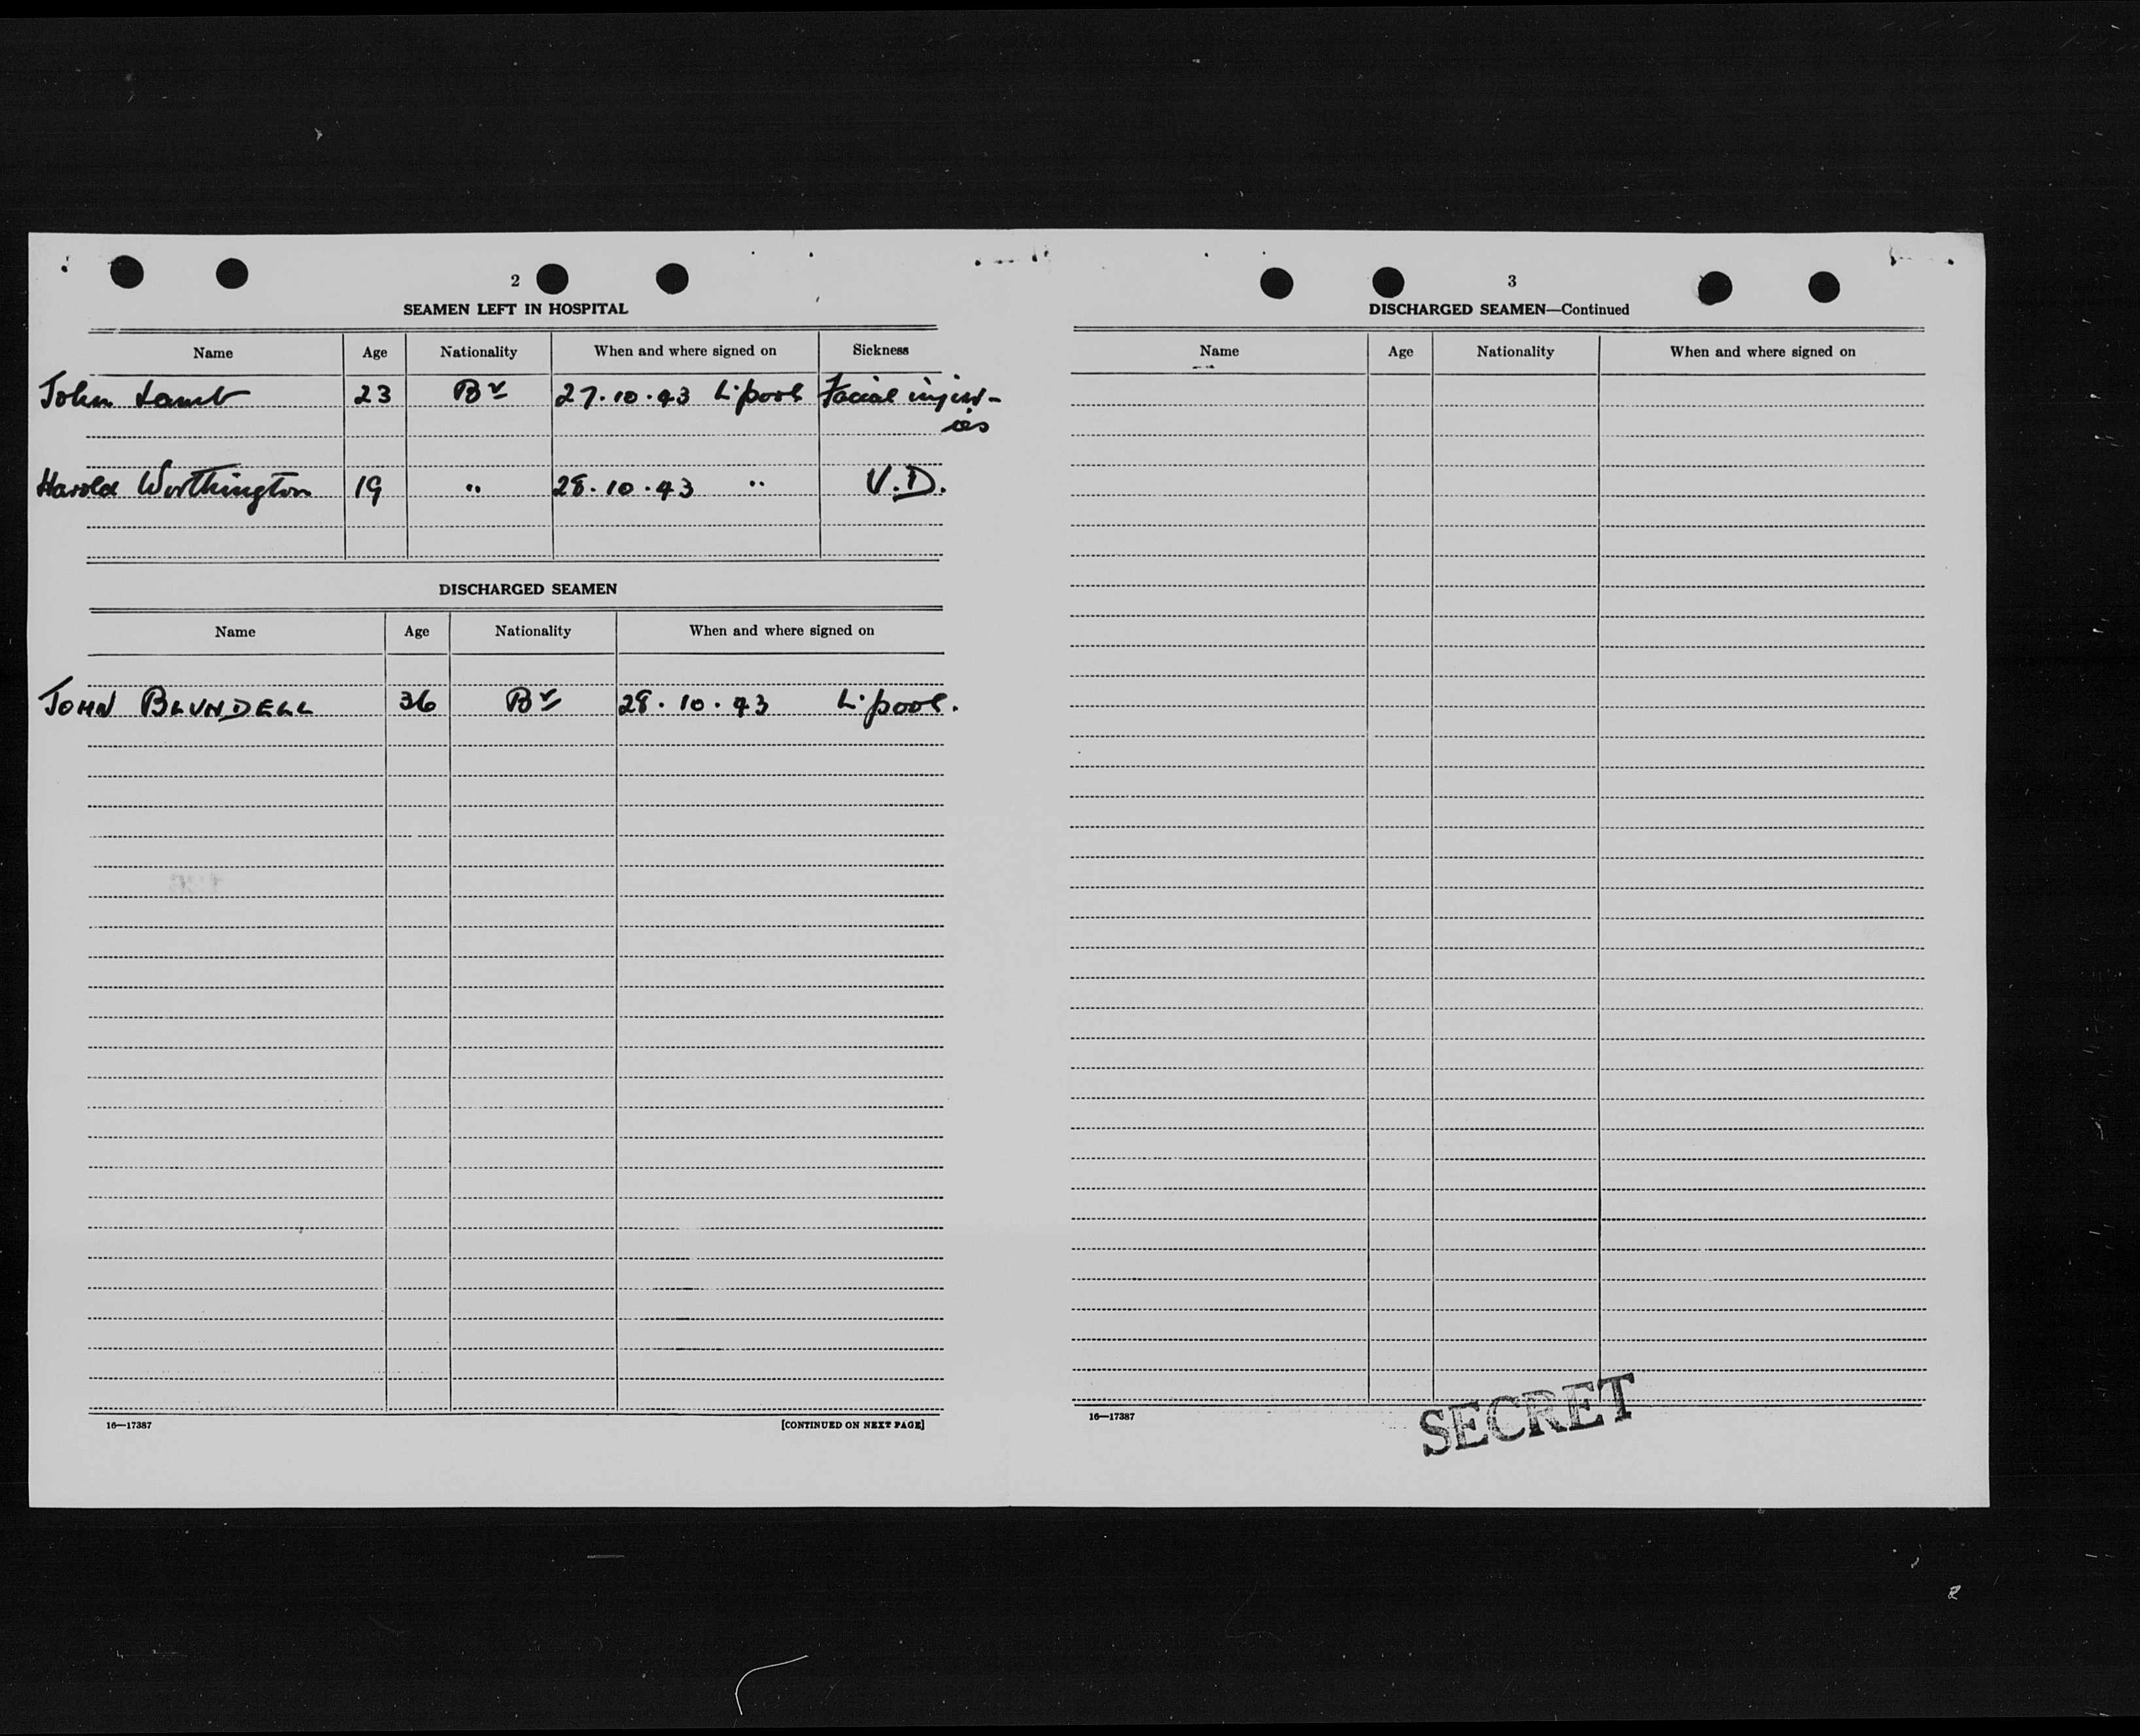 2
SEAMEN LEFT IN HOSPITAL
Name Age Nationality When and where signed on Sickness
John Lamb 23 Br 27.10.43 L'pool Facial injur-
ies
Harold Worthington 19 " 28.10.43 " V.D.
DISCHARGED SEAMEN
Name Age Nationality When and where signed on
JOHN BLUNDELL 36 Br 28.10.43 L'pool.
16—17387 [CONTINUED ON NEXT PAGE]
3
DISCHARGED SEAMEN—Continued
Name Age Nationality When and where signed on
16—17387
SECRET